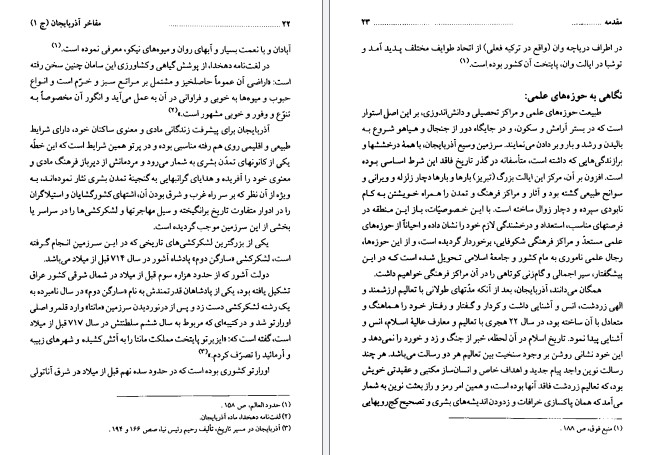 ۲۲ مفاخر آذربایجان (ج ۱)
آبادان و با نعمت بسیار و آبهای روان و میوه‌های نیکو، معرفی نموده است.(۱)
در لغت‌نامه دهخدا، از پوشش گیاهی و کشاورزی این سامان چنین سخن رفته
است: «اراضی آن عموماً حاصلخیز و مشتمل بر مراتع سبز و خرّم است و انواع
حبوب و میوه‌ها به خوبی و فراوانی در آن به عمل می‌آید و انگور آن مخصوصاً به
تنوّع و وفور و خوبی مشهور است.»(۲)
آذربایجان برای پیشرفت زندگانی مادی و معنوی ساکنان خود، دارای شرایط
طبیعی و اقلیمی روی هم رفته مناسبی بوده و در پرتو همین شرایط است که این خطّه
یکی از کانونهای تمدّن بشری به شمار می‌رود و مردمانش از دیرباز فرهنگ مادی و
معنوی خود را آفریده و هدایای گرانبهایی به گنجینهٔ تمدن بشری نثار نموده‌اند، به
ویژه از آن نظر که بر سر راه غرب و شرق بودن آن، اشتهای کشورگشایان و استیلاگران
را در ادوار متفاوت تاریخ برانگیخته و سیل مهاجرتها و لشکرکشی‌ها را در سراسر یا
بخشی از این سرزمین موجب گردیده است.
یکی از بزرگترین لشکرکشی‌های تاریخی که در این سرزمین انجام گرفته
است، لشکرکشی «سارگن دوم» پادشاه آشور در سال ۷۱۴ قبل از میلاد می‌باشد.
دولت آشور که از حدود هزاره سوم قبل از میلاد در شمال شرقی کشور عراق
تشکیل یافته بود، یکی از پادشاهان قدرتمندش به نام «سارگن دوم» در سال نامبرده به
یک رشته لشکرکشی دست زد و پس از درنوردیدن سرزمین «ماننا» وارد قلمرو اصلی
اورارتو شد و در کتیبه‌ای که مربوط به سال ششم سلطنتش در سال ۷۱۷ قبل از میلاد
است، گفته است که: «ایزیرتو پایتخت مملکت ماننا را به آتش کشیده و شهرهای زیبیه
و آرمائید را تصرّف کردم.»(۳)
اورارتو کشوری بوده است که در حدود سده نهم قبل از میلاد در شرق آناتولی
(۱) حدودالعالم، ص ۱۵۸ .
(۲) لغت‌نامه دهخدا، ماده آذربایجان.
(۳) آذربایجان در مسیر تاریخ، تألیف رحیم رئیس نیا، صص ۱۶۶ و ۱۹۴ .
مقدمه ۲۳
در اطراف دریاچه وان (واقع در ترکیه فعلی) از اتحاد طوایف مختلف پدید آمد و
توشپا در ایالت وان، پایتخت آن کشور بوده است.(۱)
نگاهی به حوزه‌های علمی:
طبیعت حوزه‌های علمی و مراکز تحصیلی و دانش‌اندوزی، بر این اصل استوار
است که در بستر آرامش و سکون، و در جایگاه دور از جنجال و هیاهو شروع به
بالیدن و رشد و بار و بر دادن می‌نمایند. سرزمین وسیع آذربایجان، با همهٔ درخششها و
برازندگی‌هایی که داشته است، متأسفانه در گذر تاریخ فاقد این شرط اساسی بوده
است. افزون بر آن، مرکز این ایالت بزرگ (تبریز) بارها و بارها دچار زلزله و ویرانی و
سوانح طبیعی گشته بود و آثار و مراکز فرهنگ و تمدن را همراه خویشتن به کام
نابودی سپرده و دچار زوال ساخته است. با این خصوصیّات، باز این منطقه در
فرصتهای مناسب، استعداد و درخشندگی لازم خود را نشان داده و احیاناً از حوزه‌های
علمی مستعدّ و مراکز فرهنگی شکوفایی، برخوردار گردیده است، و از این حوزه‌ها،
رجال علمی ناموری به مام کشور و جامعهٔ اسلامی تحویل شده است که در این
پیشگفتار، سیر اجمالی و گام‌زنی کوتاهی را در آن مراکز فرهنگی خواهیم داشت.
همگان می‌دانند، آذربایجان، بعد از آنکه مدّتهای طولانی با تعالیم ارزشمند و
الهی زردشت، انس و آشنایی داشت و کردار و گفتار و رفتار خود را هماهنگ و
متعادل با آن ساخته بود، در سال ۲۲ هجری با تعالیم و معارف عالیهٔ اسلام، انس و
آشنایی پیدا نمود. تاریخ اسلام در آن لحظه، خبر از جنگ و زد و خورد را نمی‌دهد و
این خود نشانی روشن بر وجود سنخیت بین تعالیم هر دو رسالت می‌باشد. هر چند
رسالت نوین واجد پیام جدید و اهداف خاص و انسان‌ساز مکتبی و عقیدتی خویش
بود، که تعالیم زردشت فاقد آنها بوده است، و همین امر رمز و راز بعثت نوین به شمار
می‌آمد که همان پاکسازی خرافات و زدودن اندیشه‌های بشری و تصحیح کج‌رویهایی
(۱) منبع فوق، ص ۱۸۸ .